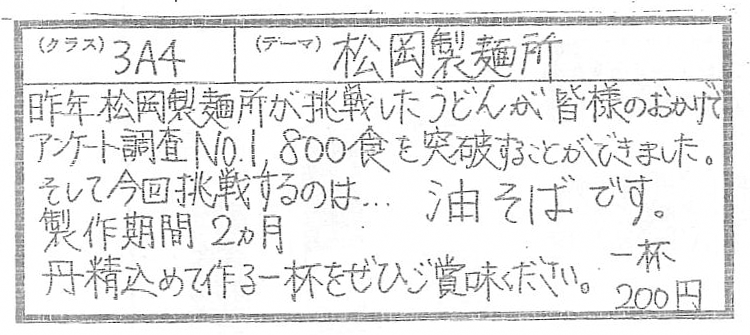 (クラス) 3A4 (テーマ) 松岡製麺所
昨年松岡製麺所が挑戦したうどんが皆様のおかげで
アンケート調査No.1,800食を突破することができました。
そして今回挑戦するのは… 油そばです。
製作期間 2ヵ月
丹精込めて作る一杯をぜひご賞味ください。
一杯
200円